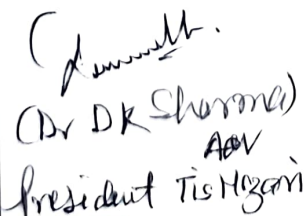 (Dr DK Sharma)
Adv
President Tis Hazari